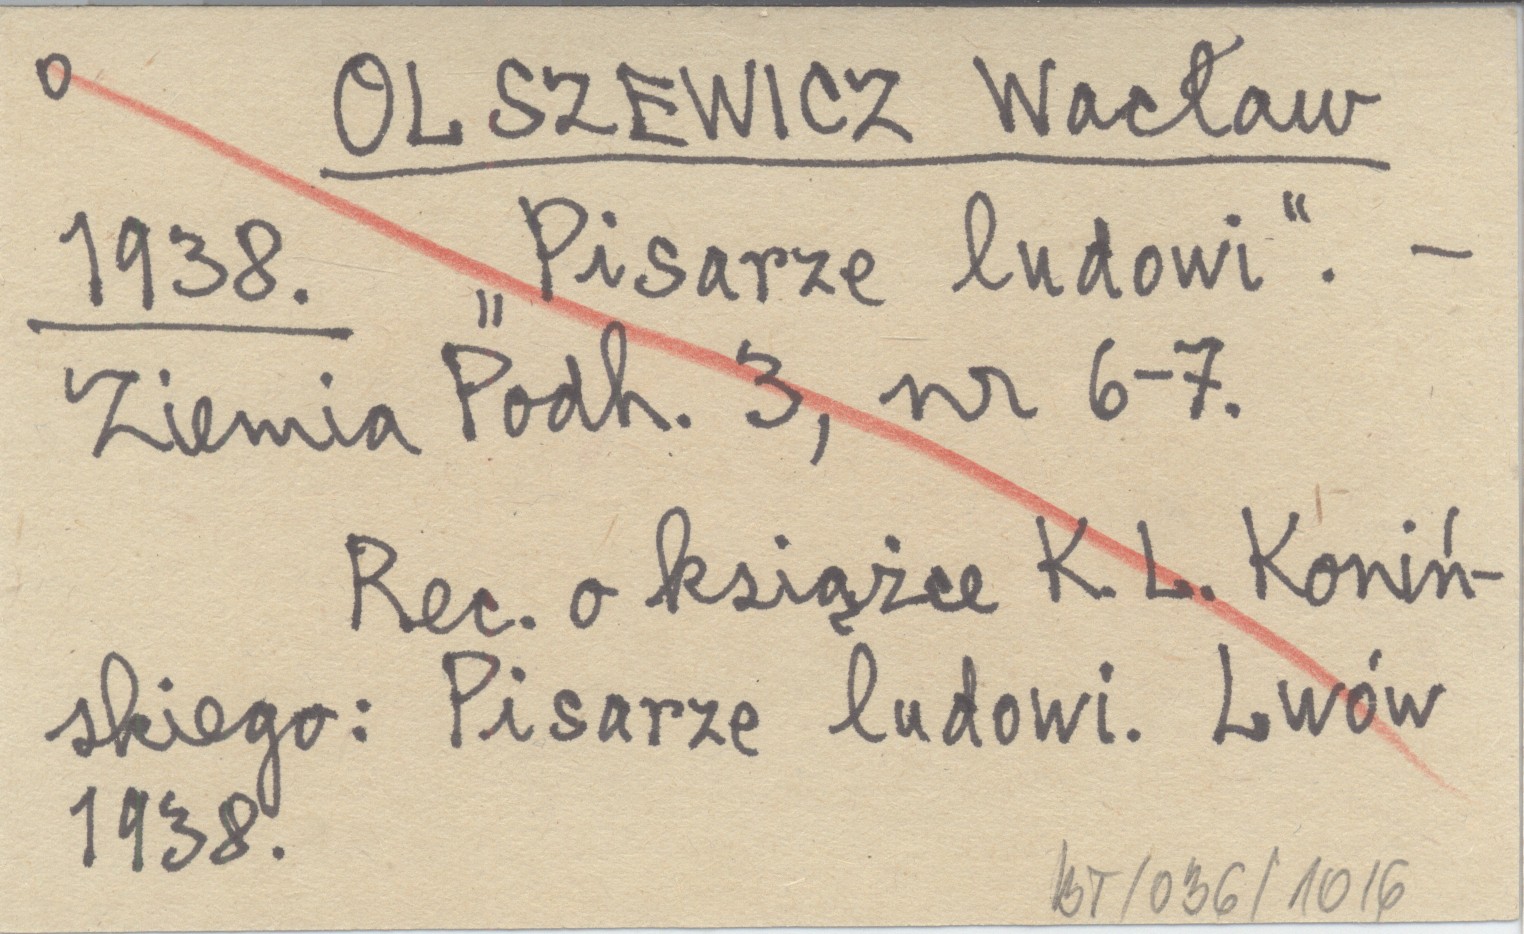 o OLSZEWICZ Wacław
1938. „Pisarze ludowi“. –
Ziemia Podh. 3, nr 6-7.
Rec. o książce K. L. Koniń-
skiego: Pisarze ludowi. Lwów
1938.
BT/036/1016